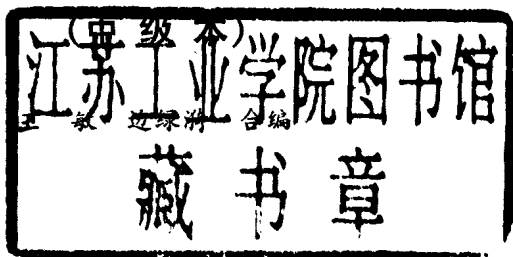 (中级本)
江苏工业学院图书馆
王敏 边绿漪 合编
藏书章